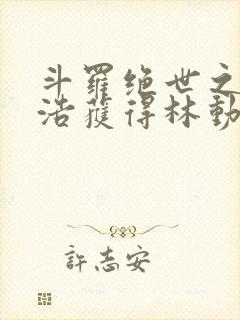 斗羅绝世之
浩獲得林動
許志安